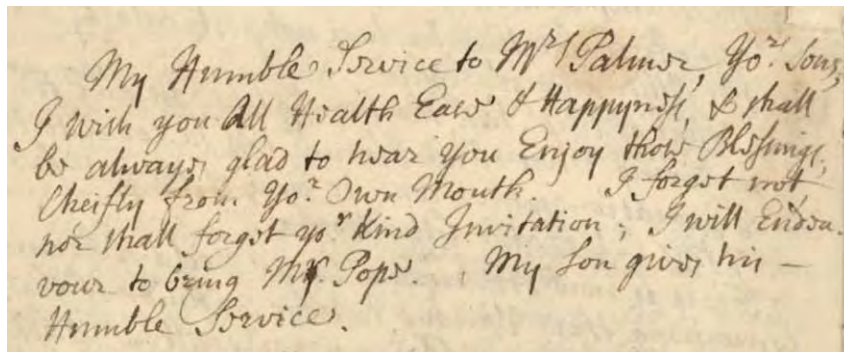 My Humble Service to Mrs Palmer, Yor. Sons,
I wish you All Health Ease & Happyness, & shall
be always glad to hear you Enjoy those Blessings,
Cheifly from Yor. Own Mouth. I forget not
nor shall forget yor. Kind Invitation; I will Endea-
vour to bring Mr. Pope. My Son gives his —
Humble Service.